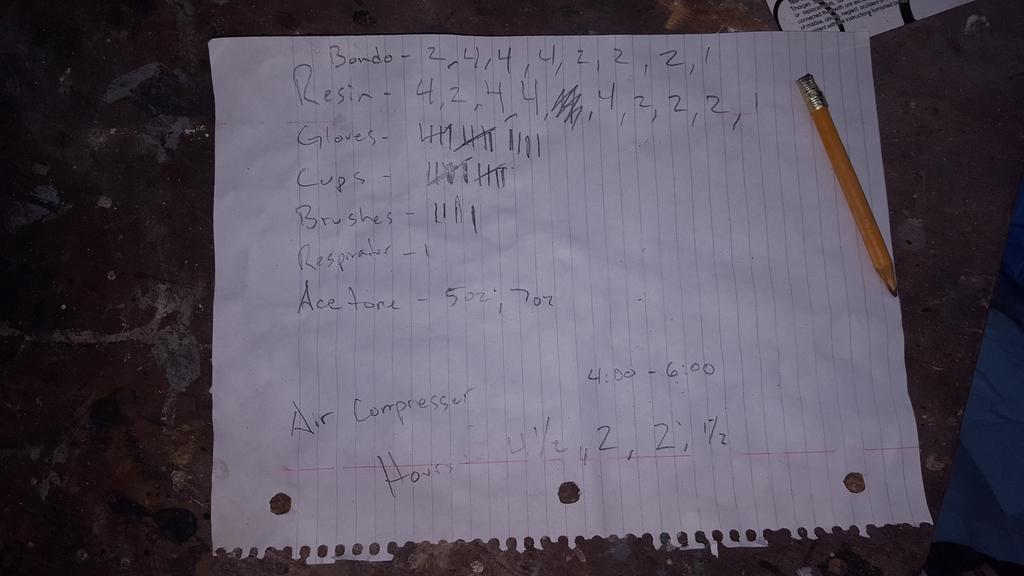 Bondo - 2, 4, 4, 4, 2, 2, 2, 1
Resin - 4, 2, 4, 4, 4, 2, 2, 2, 1
Gloves -
Cups -
Brushes - ||||
Respirator - 1
Acetone - 5oz, 7oz
4:00 - 6:00
Air Compresser
Hours 4 1/2, 2, 2, 1/2